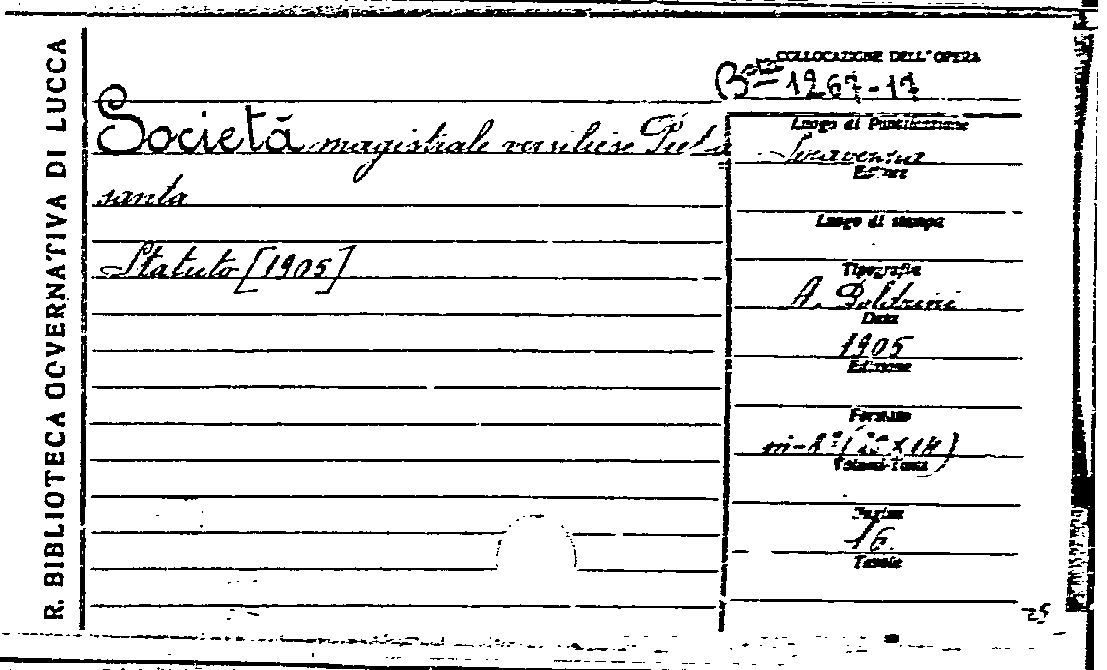 R. BIBLIOTECA GOVERNATIVA DI LUCCA
COLLOCAZIONE DELL'OPERA
Bta 1267-17
Società magistrale versiliese Pietra
santa
Statuto [1905]
Luogo di Pubblicazione
Seravezza
Editore
Luogo di stampa
Tipografia
A. Boldrini
Data
1905
Edizione
Formato
in-8° (
Volumi-Tomi
Pagine
16
Tavole
25